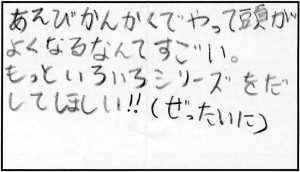 あそびかんかくでやって頭が
よくなるなんてすごい。
もっといろいろシリーズをだ
してほしい!!(ぜったいに)